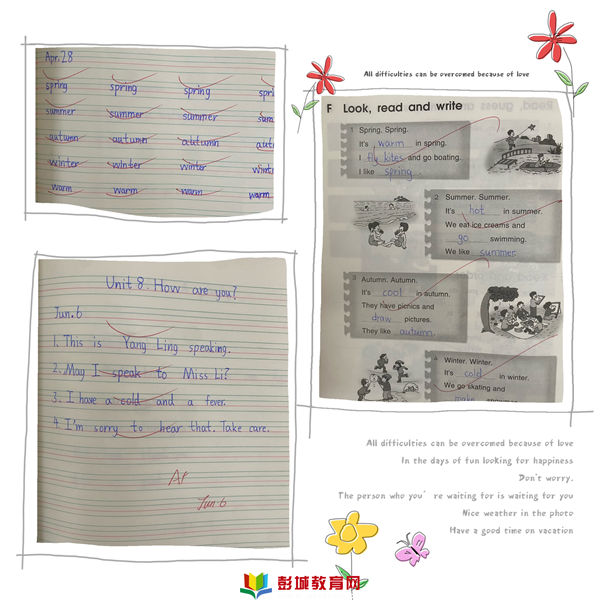 Apr.28
spring spring spring spri
summer summer summer sum
autumn autumn autumn aut
winter winter winter wint
warm warm warm warm
All difficulties can be overcomed because of love
F Look, read and write
1 Spring. Spring.
It's warm in spring.
I fly kites and go boating.
I like spring.
2 Summer. Summer.
It's hot in summer.
We eat ice creams and
go swimming.
We like summer.
3 Autumn. Autumn.
It's cool in autumn.
They have picnics and
draw pictures.
They like autumn.
4 Winter. Winter.
It's cold in winter.
We go skating and
make
Unit 8. How are you?
Jun.6
1. This is Yang Ling speaking.
2. May I speak to Miss Li?
3. I have a cold and a fever.
4. I'm sorry to hear that. Take care.
Jun.6
All difficulties can be overcomed because of love
In the days of fun looking for happiness
Don't worry.
The person who you' re waiting for is waiting for you
Nice weather in the photo
Have a good time on vacation
彭城教育网